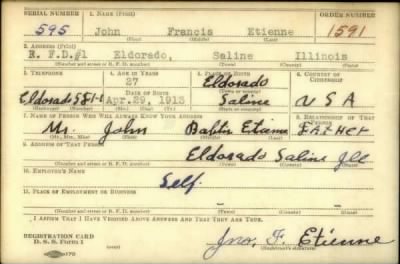 SERIAL NUMBER 1. NAME (Print) ORDER NUMBER
595 John Francis Etienne 1591
(First) (Middle) (Last)
2. ADDRESS (Print)
R. F.D.#1 Eldorado, Saline Illinois
(Number and street or R. F. D. number) (Town) (County) (State)
3. TELEPHONE 4. AGE IN YEARS 5. PLACE OF BIRTH 6. COUNTRY OF CITIZENSHIP
27 Eldorado
DATE OF BIRTH (Town or county)
Eldorado Apr.29, 1913 Saline U S A
(Exchange) (Number) (Mo.) (Day) (Yr.) (State or country)
7. NAME OF PERSON WHO WILL ALWAYS KNOW YOUR ADDRESS 8. RELATIONSHIP OF THAT PERSON
Mr. John Etienne FATHER
(Mr., Mrs., Miss) (First) (Middle) (Last)
9. ADDRESS OF THAT PERSON
Eldorado Saline Ill
(Number and street or R. F. D. number) (Town) (County) (State)
10. EMPLOYER'S NAME
Self.
11. PLACE OF EMPLOYMENT OR BUSINESS
(Number and street or R. F. D. number) (Town) (County) (State)
I AFFIRM THAT I HAVE VERIFIED ABOVE ANSWERS AND THAT THEY ARE TRUE.
REGISTRATION CARD
D. S. S. Form 1 Jno. F. Etienne
(Registrant's signature)